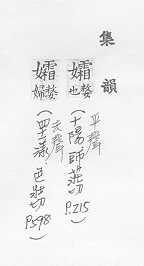 集韻
孀 嫠也(十陽師莊切 P.215) 平聲
孀 嫠婦(四十一漾色壯切 P.598) 去聲